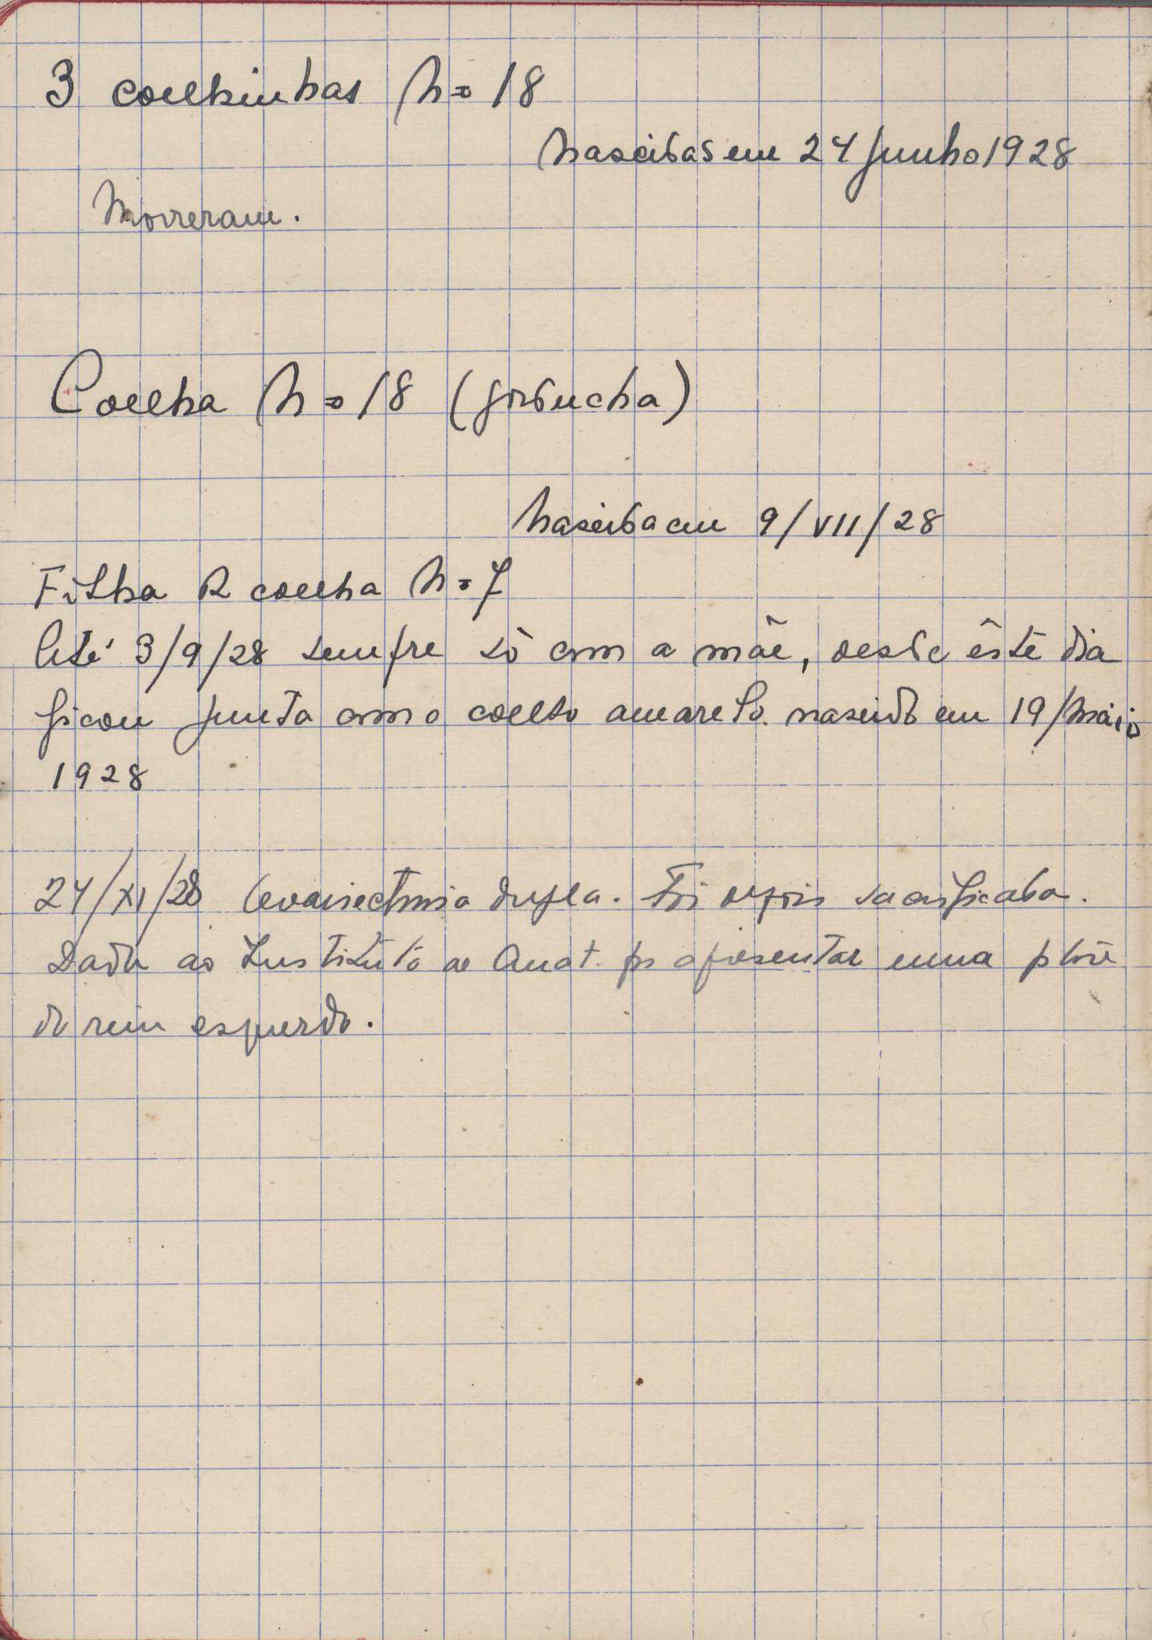 3 coelhinhas Nº 18
Nascidas em 24 Junho 1928
Morreram.
Coelha Nº 18 (gorducha)
Nascida em 9/VII/28
Filha da coelha Nº 7
Até 3/9/28 sempre só com a mãe, desde êste dia
ficou junta com o coelho amarelo nascido em 19/Maio
1928
24/XI/28 Ovariectomia dupla. Foi depois sacrificada.
Dada ao Instituto de Anat. pª apresentar uma
do rim esquerdo.